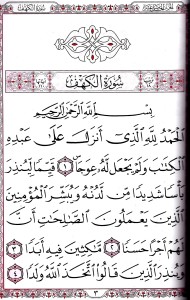 سُورَةُ الْكَهْفِ
بِسْمِ اللَّهِ الرَّحْمَٰنِ الرَّحِيمِ
الْحَمْدُ لِلَّهِ الَّذِي أَنزَلَ عَلَىٰ عَبْدِهِ
الْكِتَابَ وَلَمْ يَجْعَل لَّهُ عِوَجًا ۜ ١ قَيِّمًا لِّيُنذِرَ
بَأْسًا شَدِيدًا مِّن لَّدُنْهُ وَيُبَشِّرَ الْمُؤْمِنِينَ
الَّذِينَ يَعْمَلُونَ الصَّالِحَاتِ أَنَّ
لَهُمْ أَجْرًا حَسَنًا ٢ مَّاكِثِينَ فِيهِ أَبَدًا ٣
وَيُنذِرَ الَّذِينَ قَالُوا اتَّخَذَ اللَّهُ وَلَدًا ٤
٣